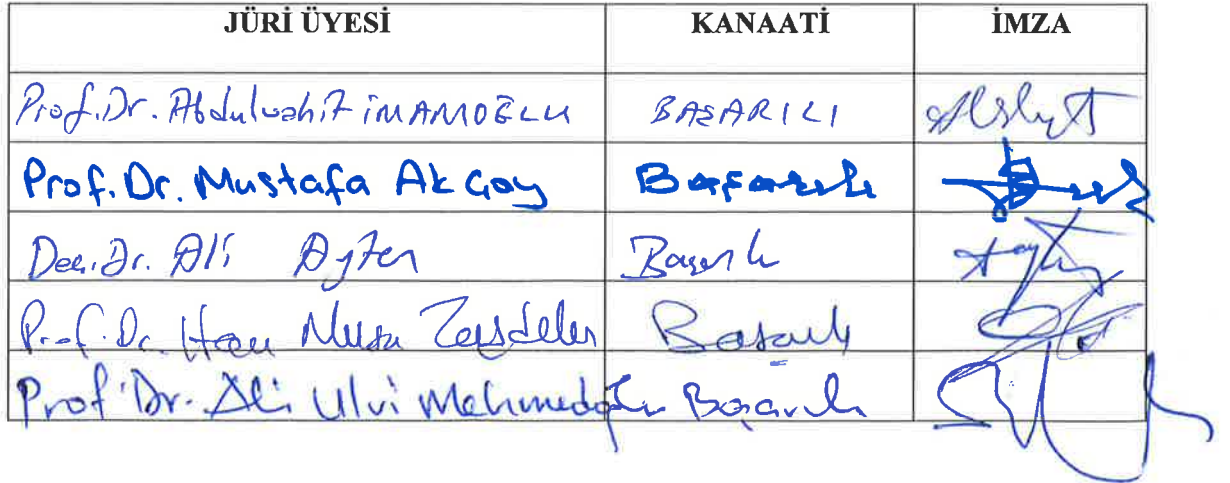 JÜRİ ÜYESİ KANAATİ İMZA
Prof.Dr. Abdulvahit İMAMOĞLU BAŞARILI
Prof. Dr. Mustafa Akçay Başarılı
Doç. Dr. Ali Ayten Başarılı
Prof. Dr. Musa Başarılı
Prof. Dr. Ali Ulvi Mehmedoğlu Başarılı